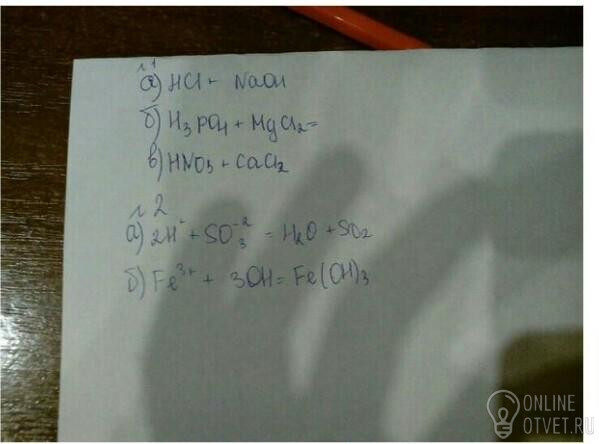 №1
а) HCl + NaOH
б) H₃PO₄ + MgCl₂ =
в) HNO₃ + CaCl₂
№2
а) 2H⁺ + SO₃⁻² = H₂O + SO₂
б) Fe³⁺ + 3OH = Fe(OH)₃
ONLINE
OTVET.RU